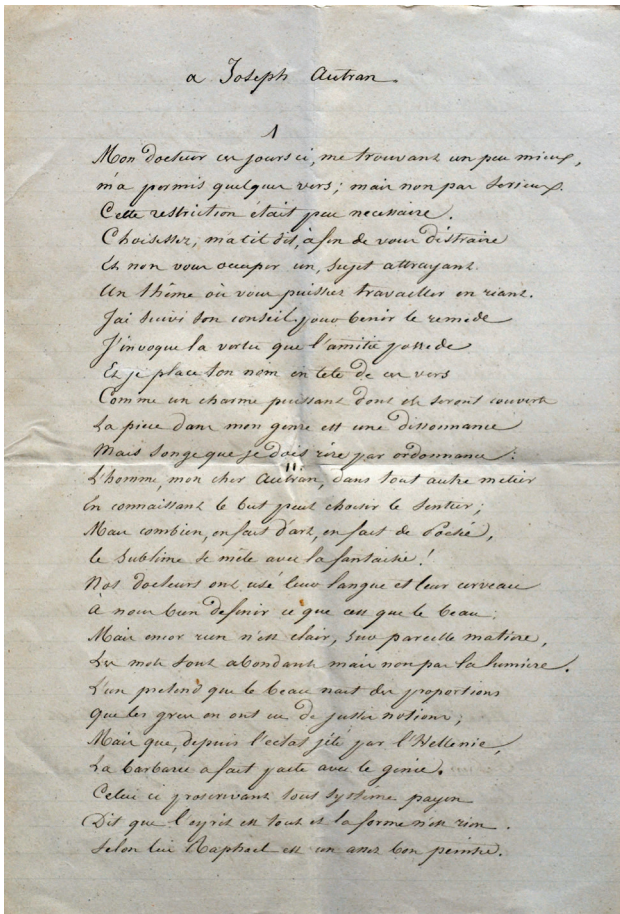 a Joseph Autran.
1
Mon docteur ces jours ci, me trouvant un peu mieux,
m'a permis quelques vers; mais non pas serieux.
Cette restriction était peu necessaire.
Choisissez, m'a-t-il dit, afin de vous distraire
Et non vous occuper un, sujet attrayant
Un thême où vous puissiez travailler en riant.
J'ai suivi son conseil, pour benir le remede
J'invoque la vertu que l'amitié possede
Et je place ton nom en tete de ces vers
Comme un charme puissant dont ils seront couverts
La piece dans mon genre est une dissonnance
Mais songe que je dois rire par ordonnance:
11
L'homme, mon cher Autran, dans tout autre metier
En connaissant le but peut choisir le sentier;
Mais combien, en fait d'art, en fait de Poésie,
le sublime se mêle avec la fantaisie!
Nos docteurs ont usé leur langue et leur cerveau
A nous bien definir ce que c'est que le beau:
Mais encor rien n'est clair, sur pareille matiere,
Les mots sont abondants mais non pas la lumiere.
L'un pretend que le beau nait des proportions
que les grecs en ont eu de justes notions;
Mais que, depuis l'eclat jété par l'Hellenie,
La barbarie a fait pacte avec le genie.
Celui ci proscrivant tout système payen
Dit que l'esprit est tout et la forme n'est rien.
Selon lui Raphael est un assez bon peintre.